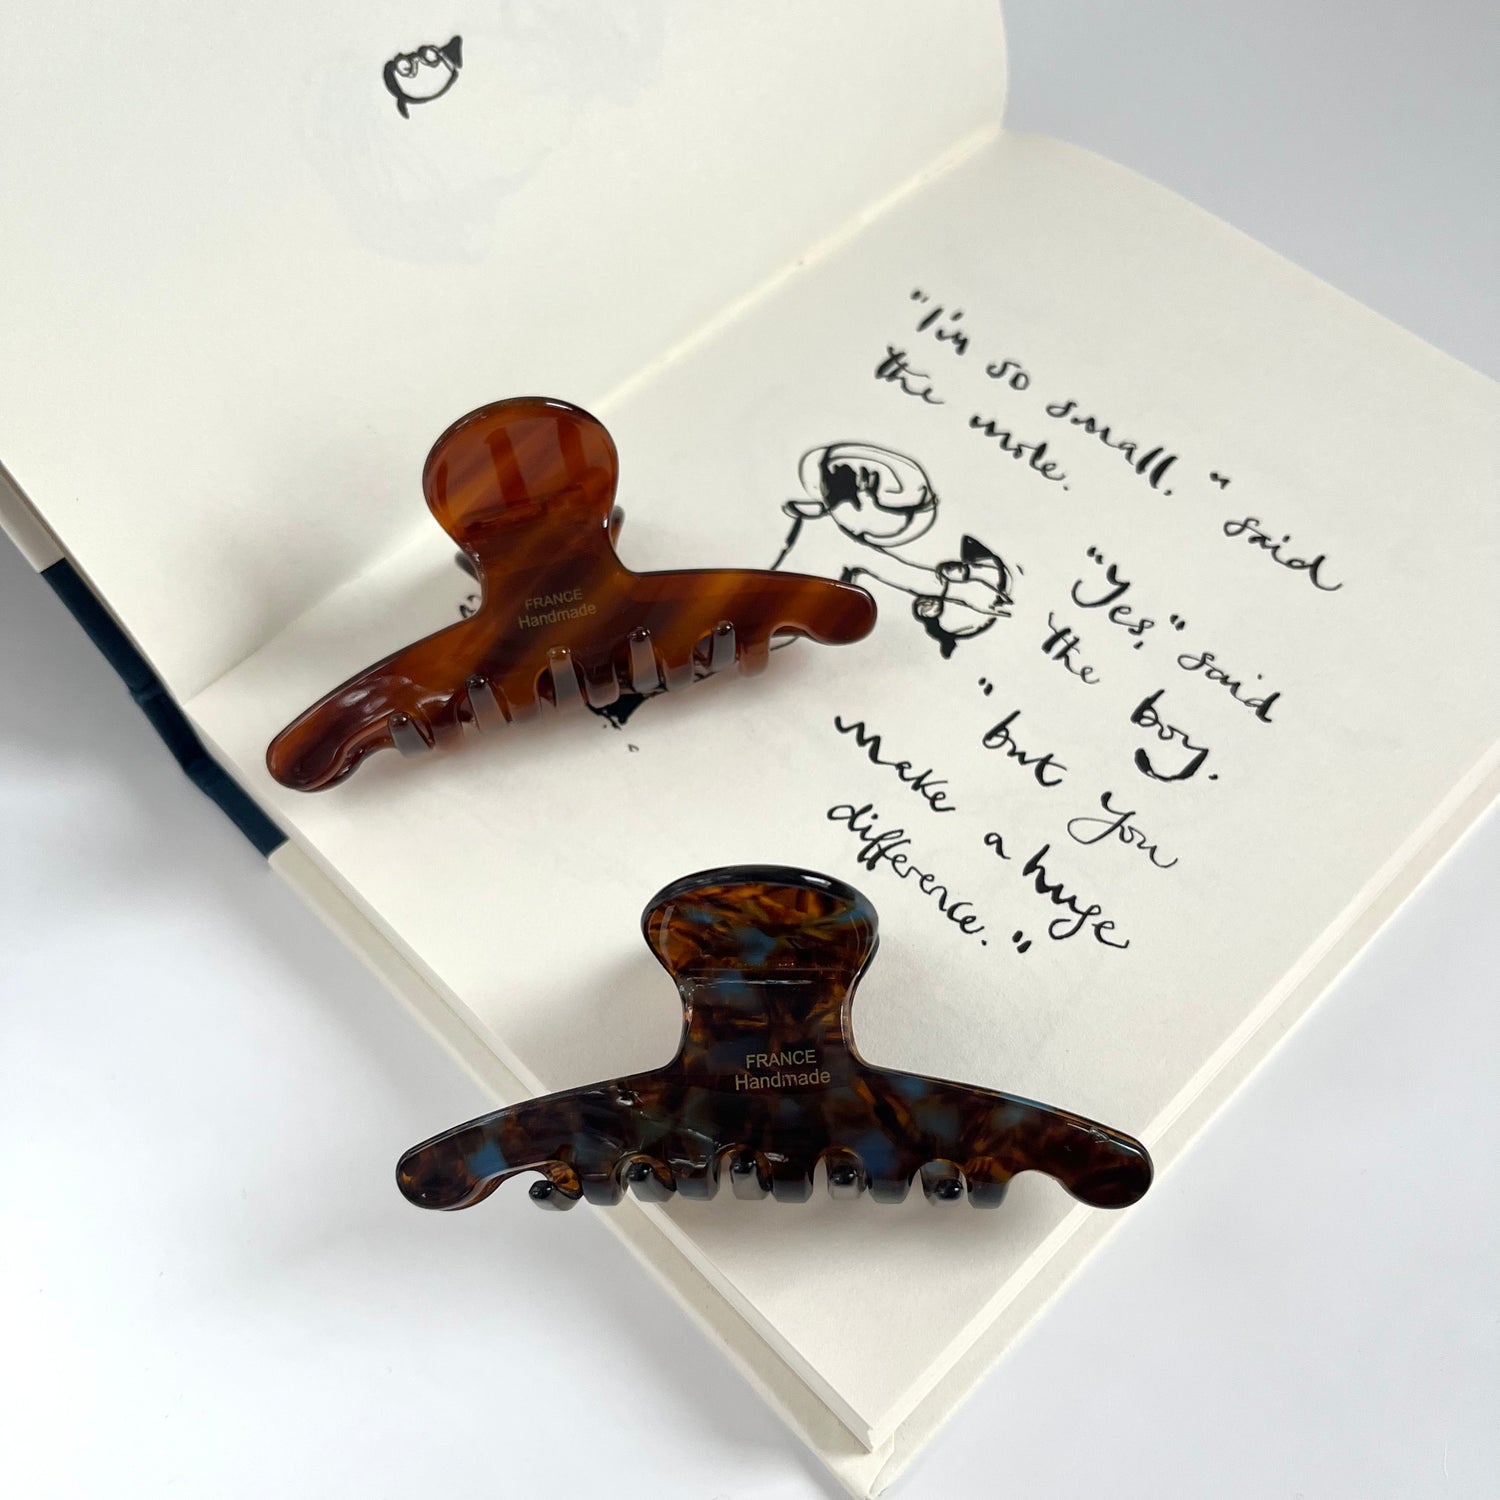 "I'm so small," said
the mole.
"Yes," said
the boy.
"but you
make a huge
difference."
FRANCE
Handmade
FRANCE
Handmade